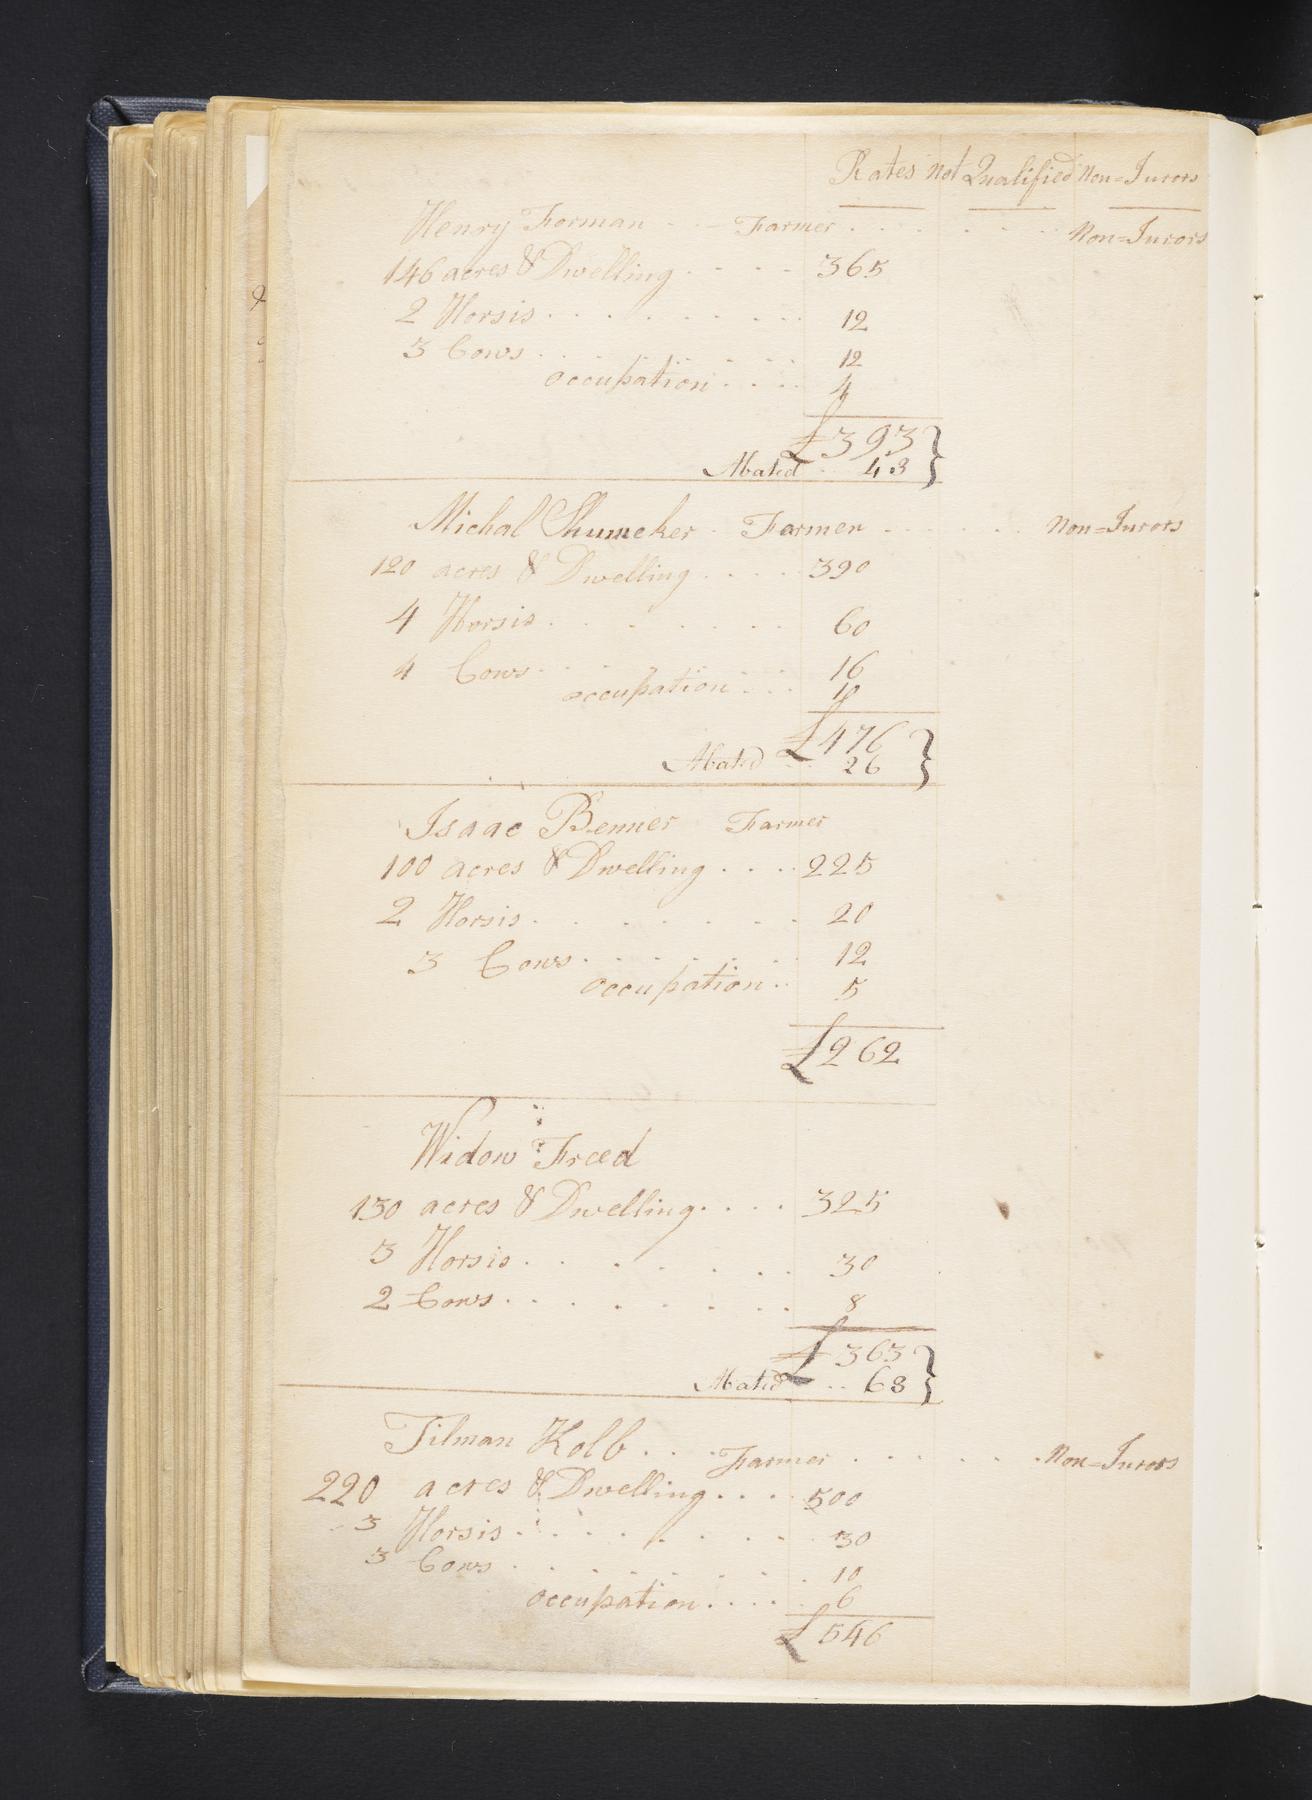 Rates Not Qualified Non=Jurors
Henry Forman Farmer Non=Jurors
146 acres & Dwelling 365
2 Horsis 12
3 Cows 12
occupation 4
£393
Abated 43
Michal Shumeker Farmer Non=Jurors
120 acres & Dwelling 390
4 Horsis 60
4 Cows 16
occupation 10
£476
Abated 26
Isaac Benner Farmer
100 acres & Dwelling 225
2 Horsis 20
3 Cows 12
occupation 5
£262
Widow Freed
130 acres & Dwelling 325
3 Horsis 30
2 Cows 8
£363
Abated 63
Tilman Kolb Farmer Non=Jurors
220 acres & Dwelling 500
3 Horsis 30
3 Cows 10
occupation 6
£546